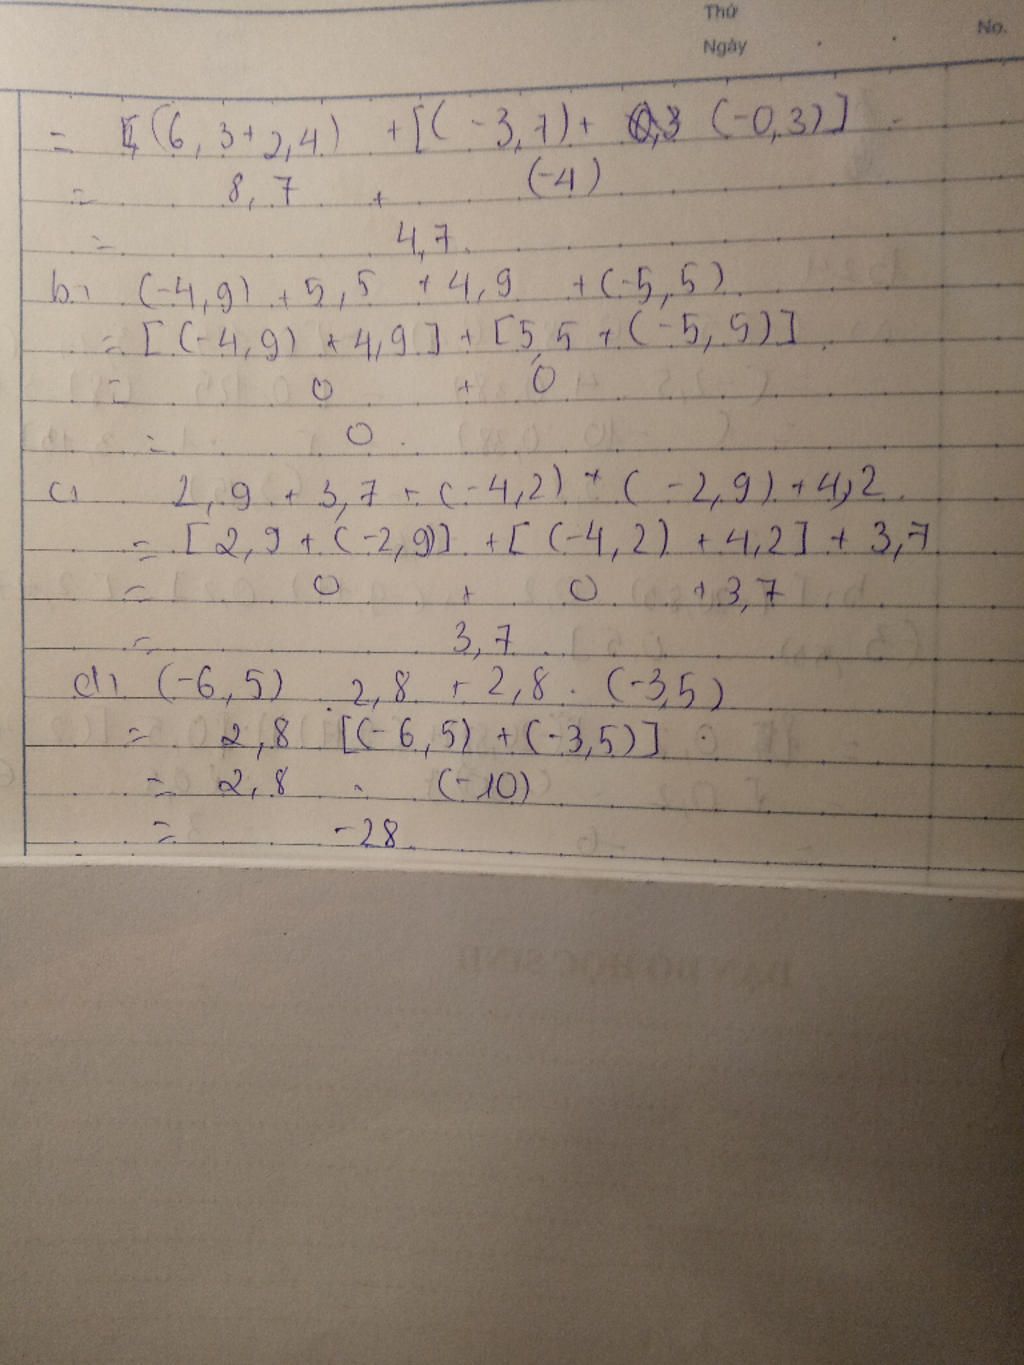 Thứ
Ngày
No.
= (6,3+2,4) + [(-3,7)+ (-0,3)]
= 8,7 + (-4)
= 4,7.
b, (-4,9) + 5,5 + 4,9 + (-5,5)
= [(-4,9) + 4,9] + [5,5 + (-5,5)]
= 0 + 0
= 0.
c, 2,9 + 3,7 + (-4,2) + (-2,9) + 4,2
= [2,9 + (-2,9)] + [(-4,2) + 4,2] + 3,7
= 0 + 0 + 3,7
= 3,7
d, (-6,5) . 2,8 + 2,8 . (-3,5)
= 2,8 [(-6,5) + (-3,5)]
= 2,8 . (-10)
= -28